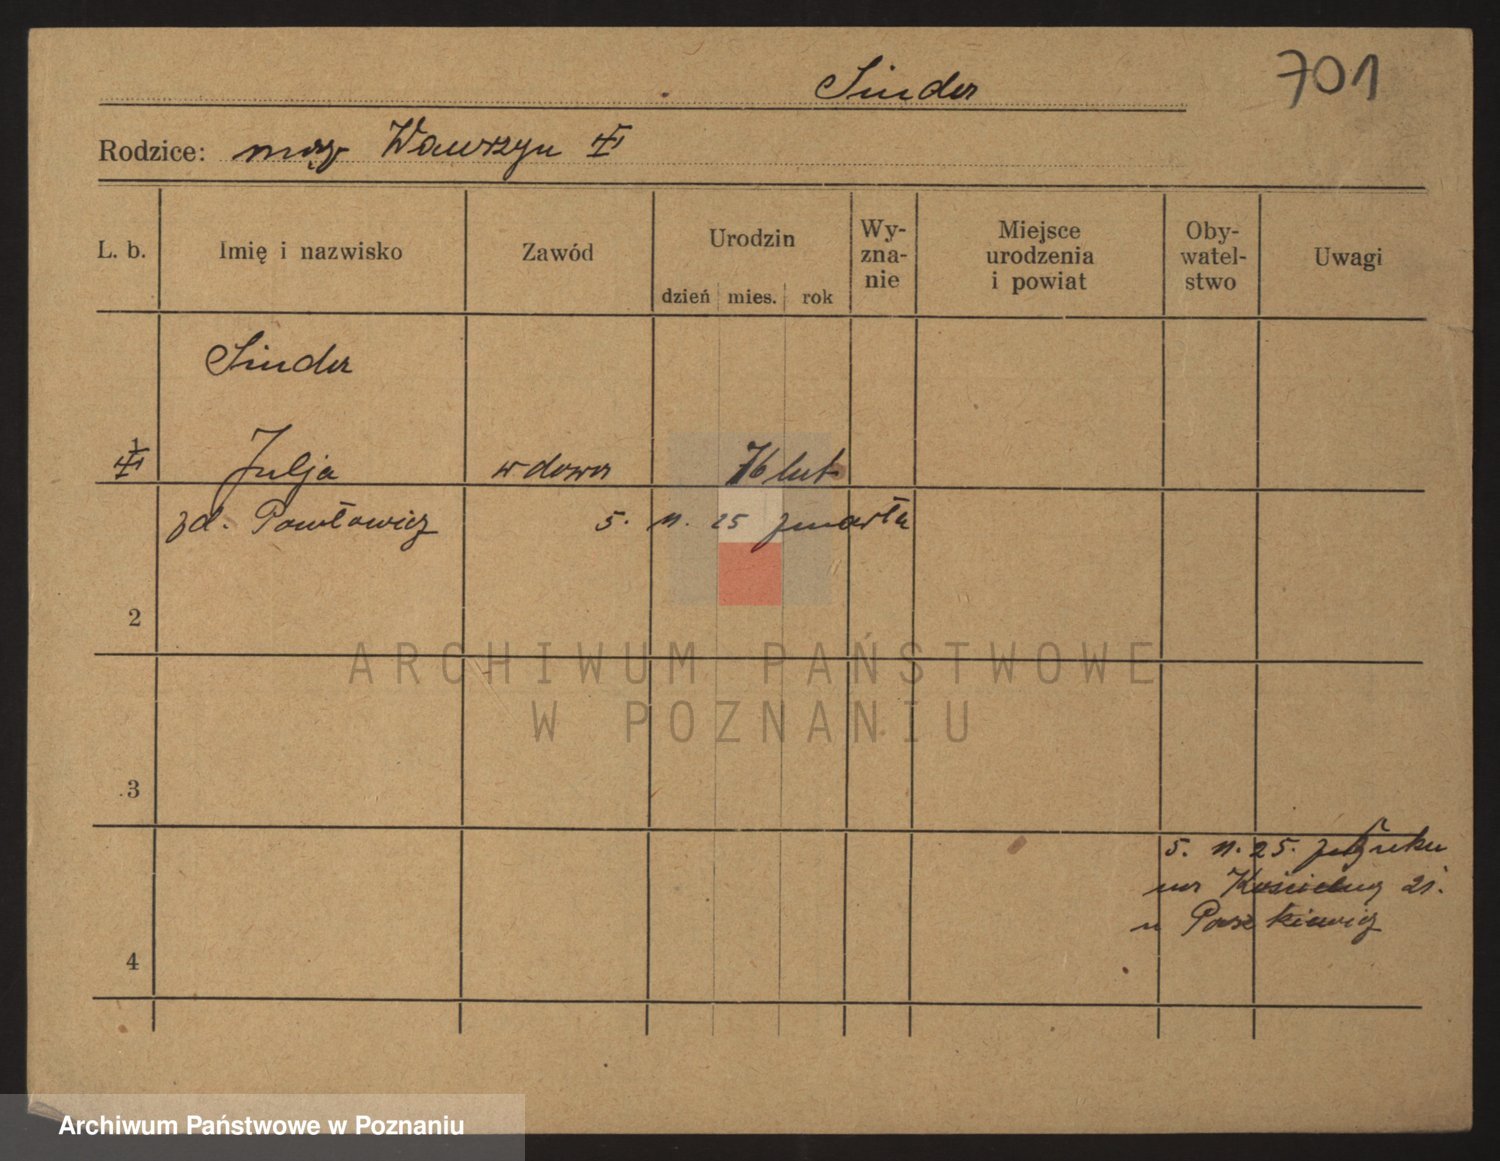 Sinder
701
Rodzice: mąż Wawrzyn
L. b. Imię i nazwisko Zawód Urodzin dzień mies. rok Wy-zna-nie Miejsce urodzenia i powiat Oby-watel-stwo Uwagi
Sinder
1 Julja wdowa 76 lat
zd. Pawłowicz 5. 11. 25 zmarła
2
ARCHIWUM PAŃSTWOWE
W POZNANIU
3
5. 11. 25.
na 21.
u Paszkiewicz
4
Archiwum Państwowe w Poznaniu